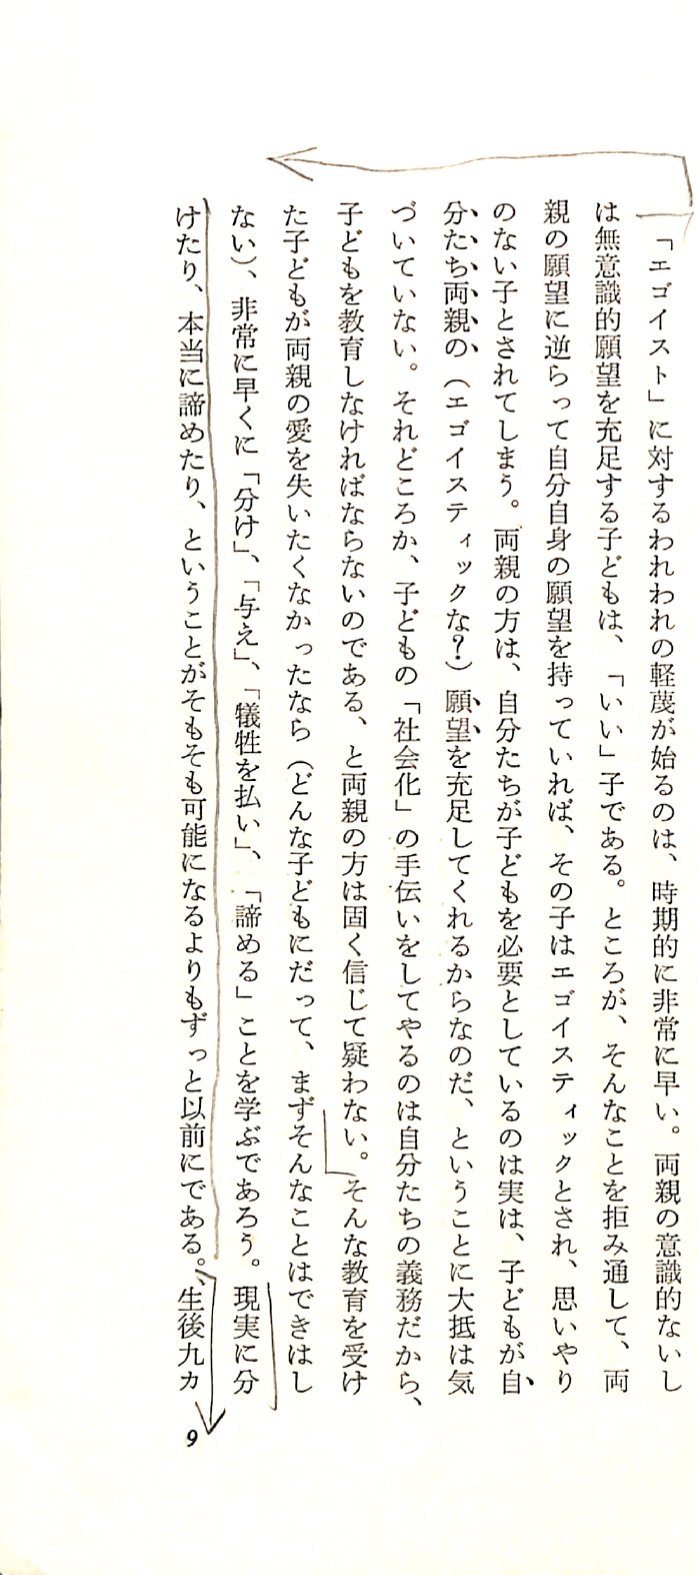 「エゴイスト」に対するわれわれの軽蔑が始るのは、時期的に非常に早い。両親の意識的ないし
は無意識的願望を充足する子どもは、「いい」子である。ところが、そんなことを拒み通して、両
親の願望に逆らって自分自身の願望を持っていれば、その子はエゴイスティックとされ、思いやり
のない子とされてしまう。両親の方は、自分たちが子どもを必要としているのは実は、子どもが自
分たち両親の（エゴイスティックな？）願望を充足してくれるからなのだ、ということに大抵は気
づいていない。それどころか、子どもの「社会化」の手伝いをしてやるのは自分たちの義務だから、
子どもを教育しなければならないのである、と両親の方は固く信じて疑わない。そんな教育を受け
た子どもが両親の愛を失いたくなかったなら（どんな子どもにだって、まずそんなことはできはし
ない）、非常に早くに「分け」、「与え」、「犠牲を払い」、「諦める」ことを学ぶであろう。現実に分
けたり、本当に諦めたり、ということがそもそも可能になるよりもずっと以前にである。生後九カ
9